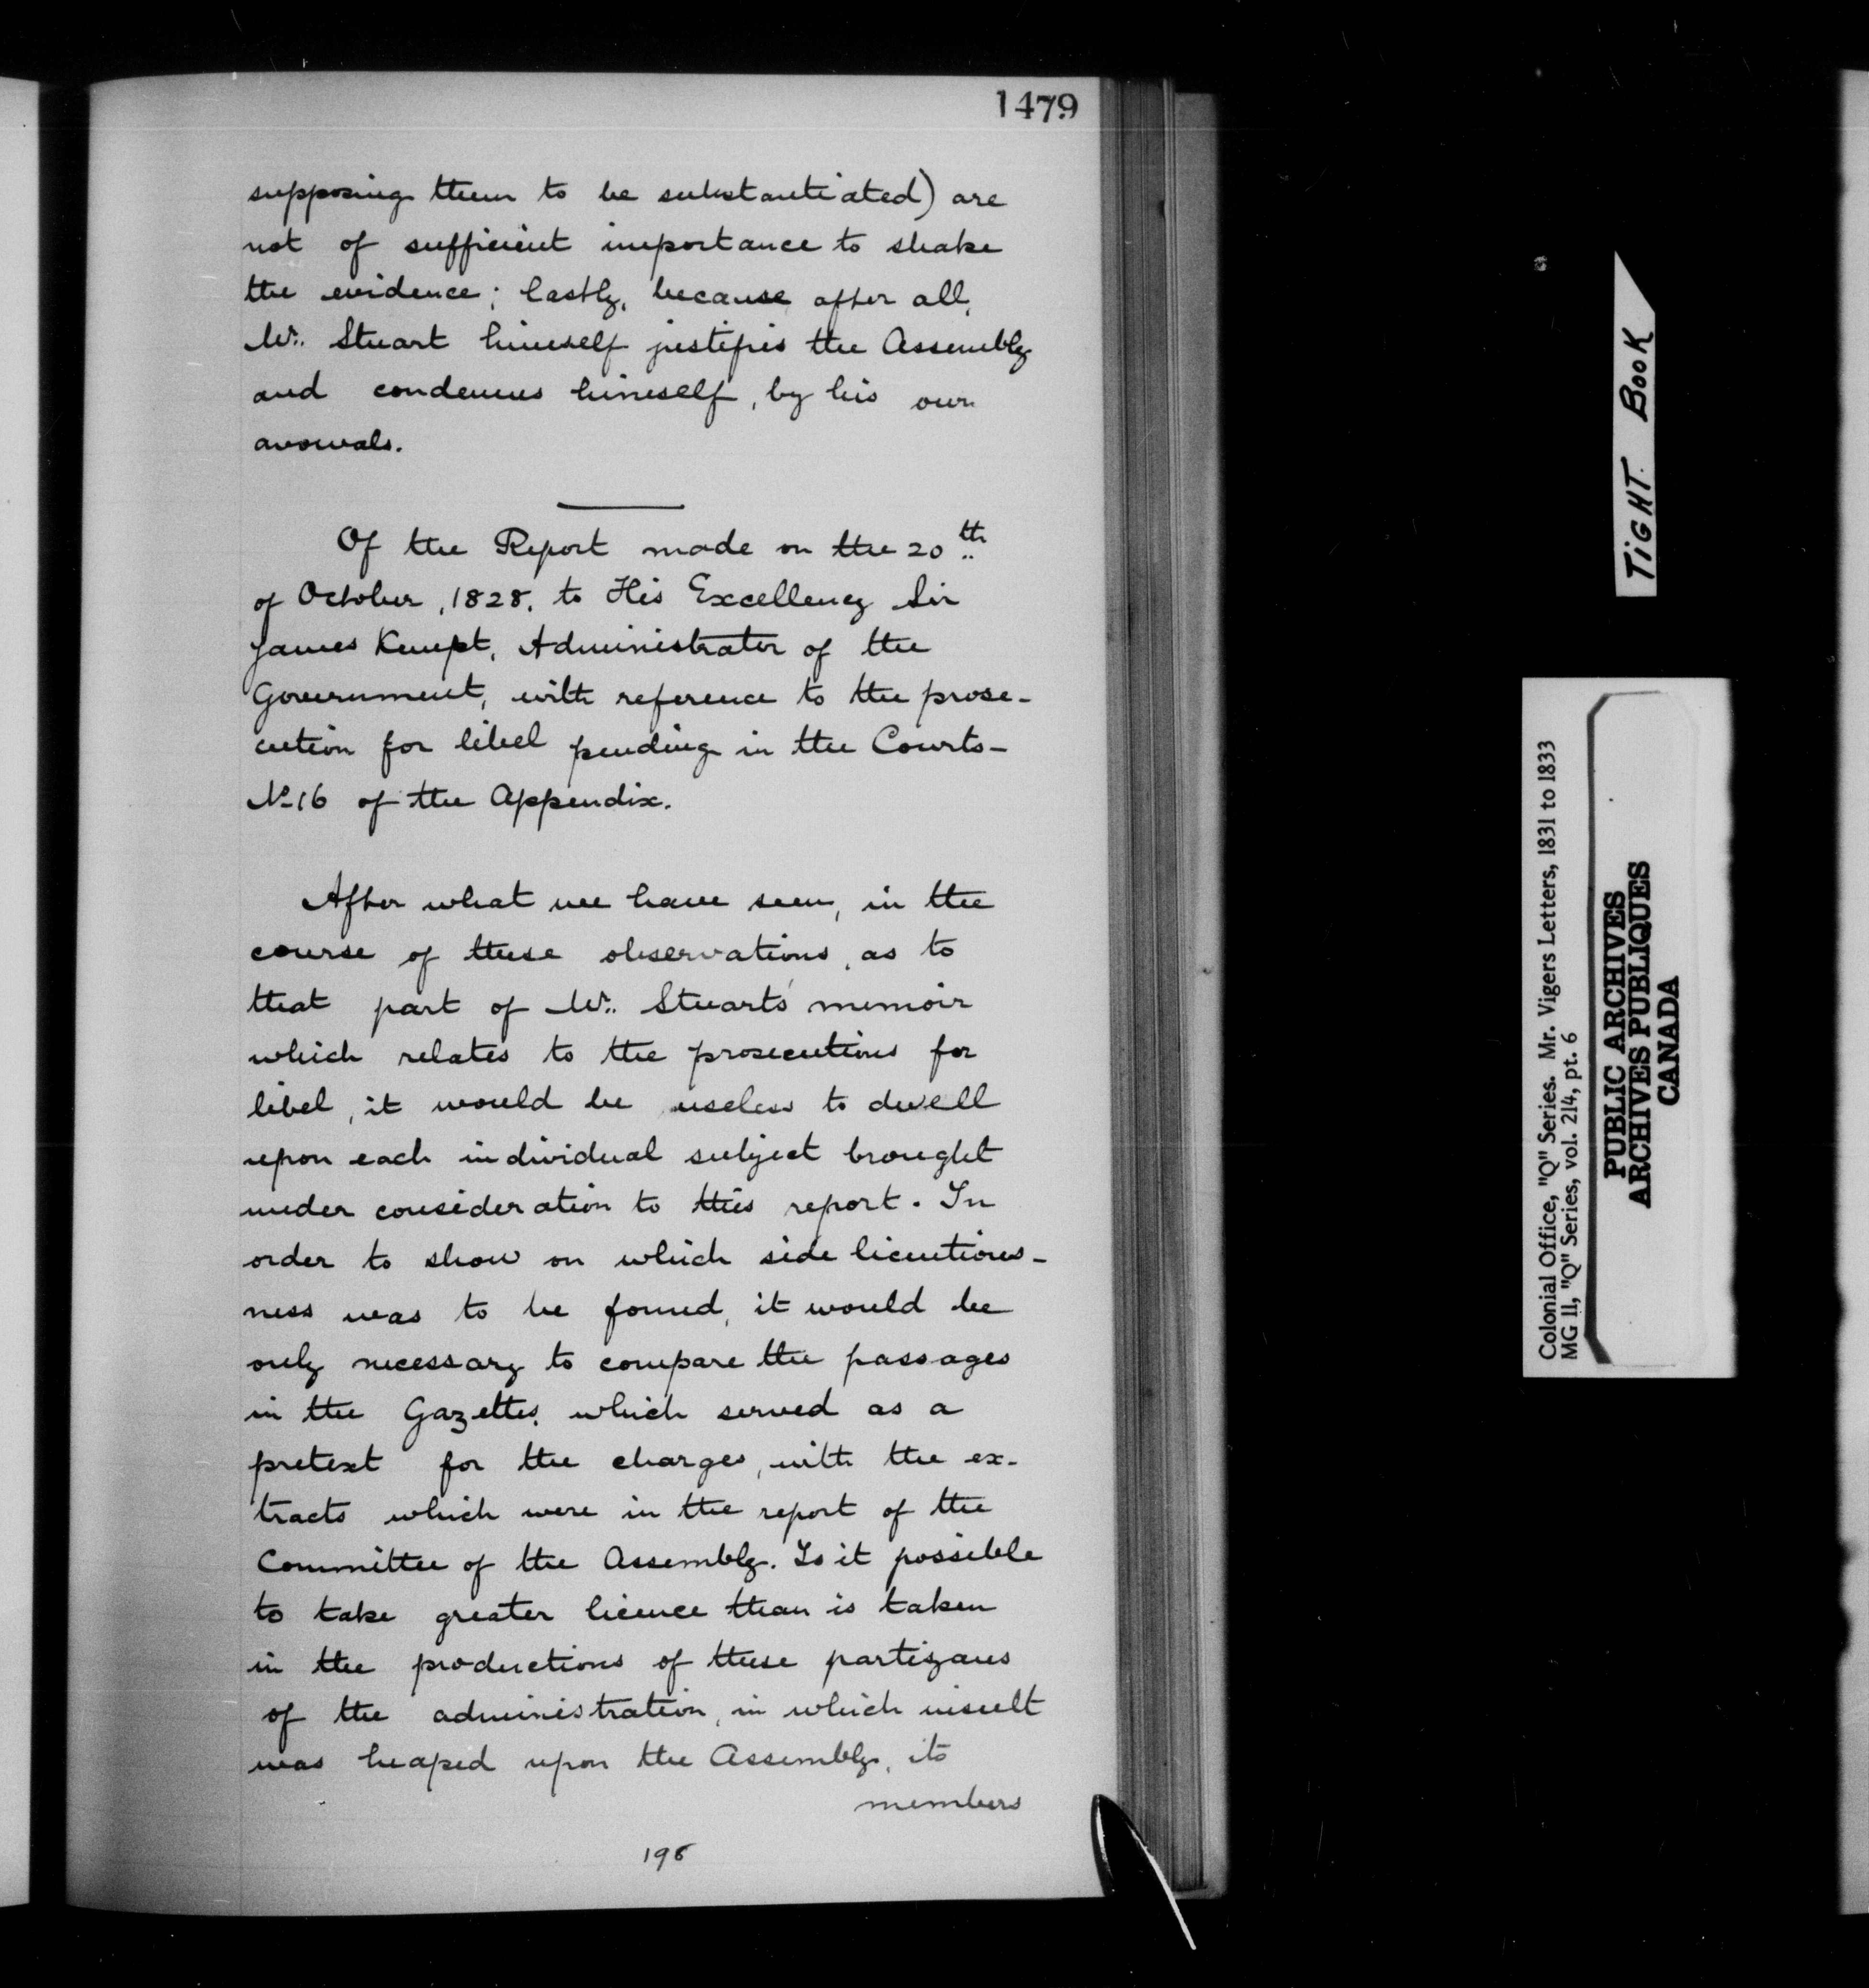 1479
supposing them to be substantiated) are
not of sufficient importance to shake
the evidence; lastly, because after all,
Mr. Stuart himself justifies the Assembly
and condemns himself, by his own
avowals.
Of the Report made on the 20th
of October, 1828, to His Excellency Sir
James Kempt, Administrator of the
Government, with reference to the prose-
cution for libel pending in the Courts-
No 16 of the Appendix.
After what we have seen, in the
course of these observations, as to
that part of Mr. Stuart's memoir
which relates to the prosecutions for
libel, it would be useless to dwell
upon each individual subject brought
under consideration to this report. In
order to show on which side licentious-
ness was to be found, it would be
only necessary to compare the passages
in the Gazettes, which served as a
pretext for the charges, with the ex-
tracts which were in the report of the
Committee of the Assembly. Is it possible
to take greater licence than is taken
in the productions of these partizans
of the administration, in which insult
was heaped upon the Assembly, its
members
TIGHT BOOK
Colonial Office, "Q" Series. Mr. Vigers Letters, 1831 to 1833
MG 11, "Q" Series, vol. 214, pt. 6
PUBLIC ARCHIVES
ARCHIVES PUBLIQUES
CANADA